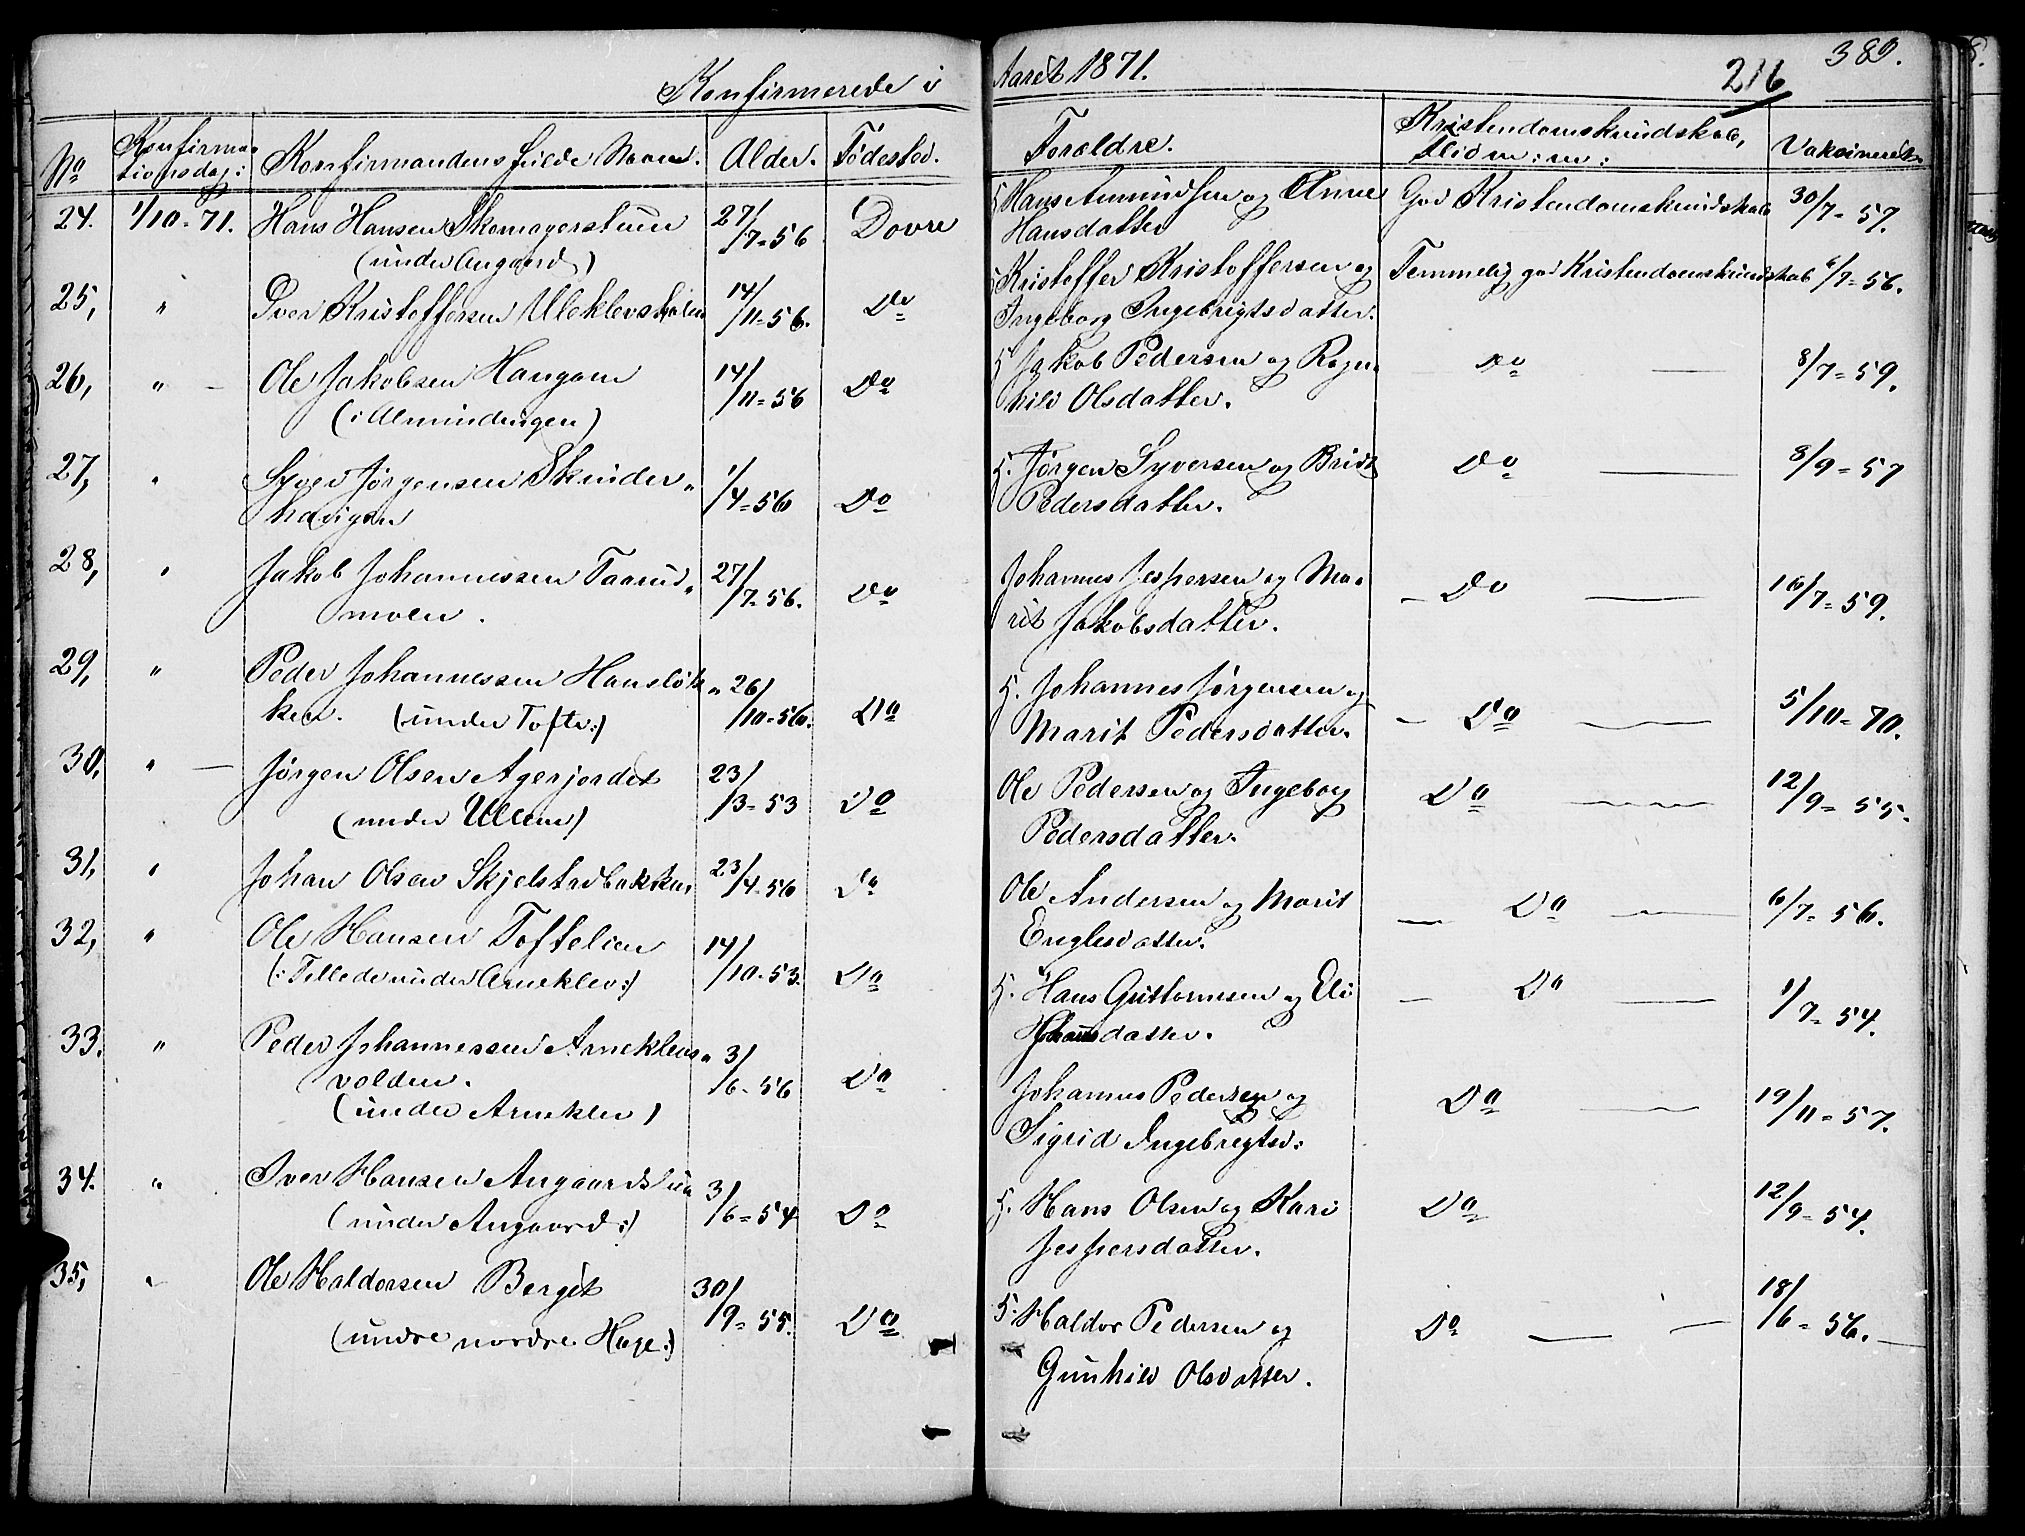 Konfirmerede i
Aaret 1871.
216
389.
No
Konfirma-
tionsdag:
Konfirmandens fulde Navn.
Alder.
Fødested.
Forældre.
Kristendomskundskab,
Flid m: m:
Vaksineret
24. 1/10-71. Hans Hansen Skomagerstuen 27/7-56 Dovre
(under Angaard)
Hans Amundsen og Anne God Kristendomskundskab 30/7-57.
Hansdatter
25, " Iver Kristoffersen Uleklevstølen 14/11-56. Do
Kristoffer Kristoffersen og Temmelig god Kristendomskundskab 6/7-56.
Ingeborg Ingebrigtsdatter.
26, " Ole Jakobsen Haugom 14/11-56 Do
(i Almindingen)
Jakob Pedersen og Ragn- Do 8/7-59.
hild Olsdatter.
27, " Syver Jørgensen Skinder- 1/4-56 Do
havigen
Jørgen Syversen og Brit Do 8/9-57
Pedersdatter.
28, " Jakob Johannessen Taarud- 27/7-56. Do
moen.
Johannes Jespersen og Ma- Do 16/7-59.
rit Jakobsdatter.
29, " Peder Johannessen Hansløk- 26/10-56. Do
ken. (under Tofte:)
Johannes Jørgensen og Do 5/10-70.
Marit Pedersdatter.
30, " Jørgen Olsen Agerjordet 23/3-53 Do
(under Ulleim)
Ole Pedersen og Ingeborg Do 12/9-55.
Pedersdatter.
31, " Johan Olsen Skjelstadbakken 23/4-56 Do
Ole Andersen og Marit Do 6/7-56.
Englesdatter.
32, " Ole Hansen Toftelien 14/10-53. Do
(: Tillede under Arneklev:)
Hans Guttormsen og Eli Do 1/7-54.
datter.
33. " Peder Johannessen Arneklevs- 3/6-56 Do
volden.
(under Arneklev)
Johannes Pedersen og Do 19/11-57.
Sigrid Ingebregtsd:
34. " Iver Hansen Angaardslien 3/6-54 Do
(under Angaard:)
Hans Olsen og Kari Do 12/9-54.
Jespersdatter.
35, " Ole Haldorsen Berget 30/9-55. Do
(undre nordre Hage:)
Haldor Pedersen og Do 18/6-56.
Gunhild Olsdatter.